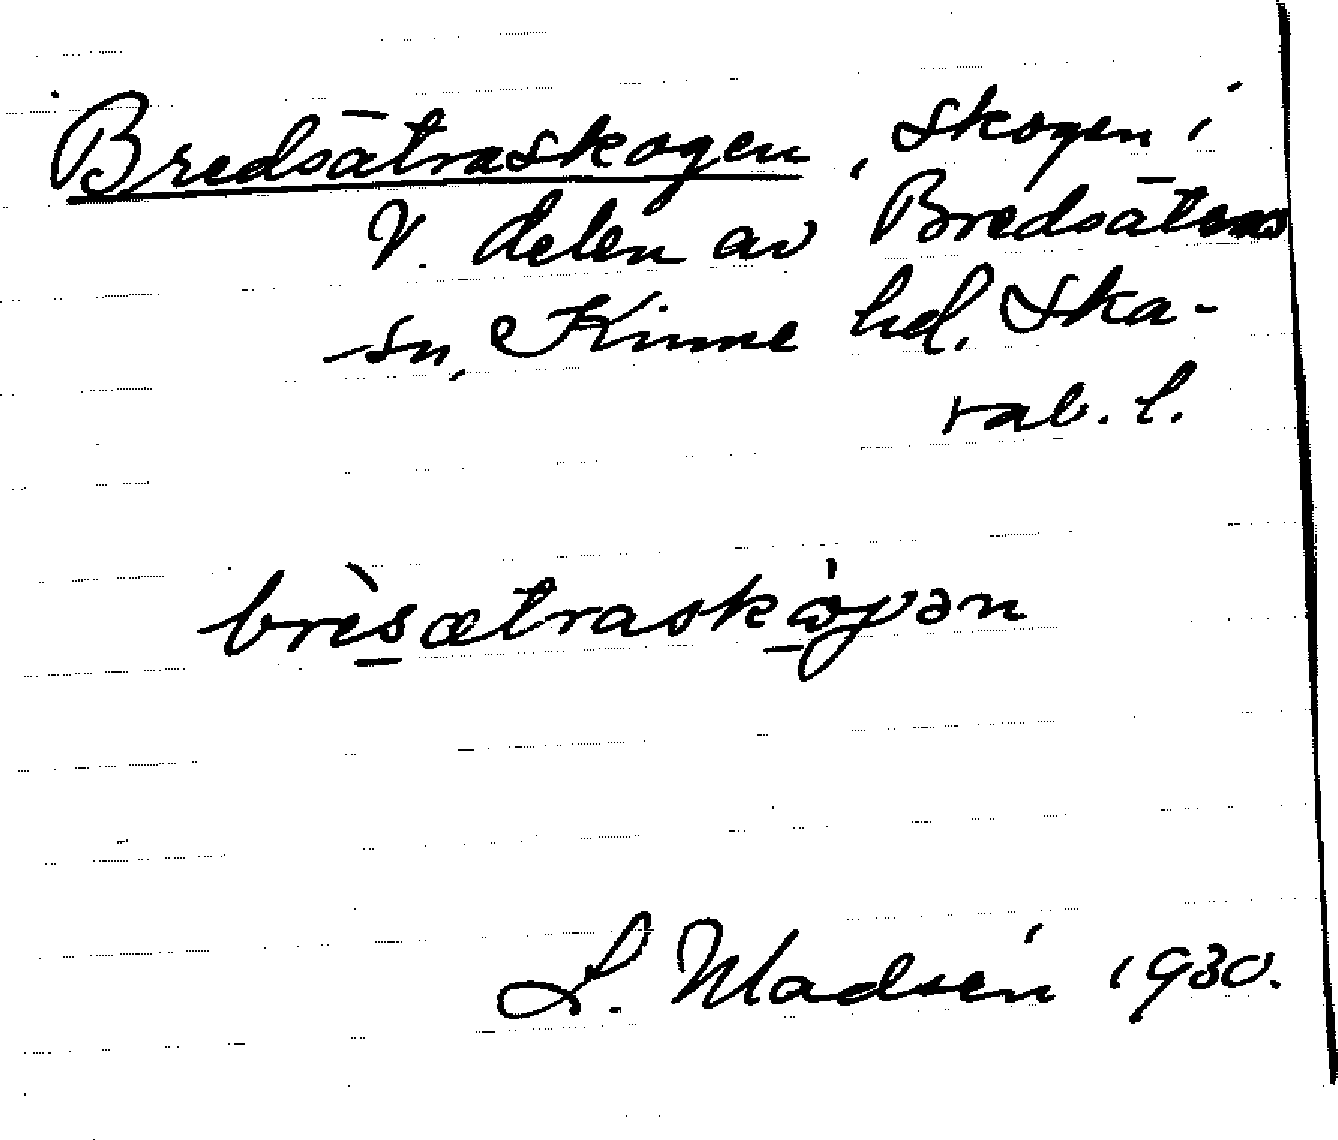 Bredsätraskogen, skogen i
V. delen av Bredsätra
sn, Kinne hd, Ska-
rab. l.
brèsætraskώγən
L. Madsén 1930.